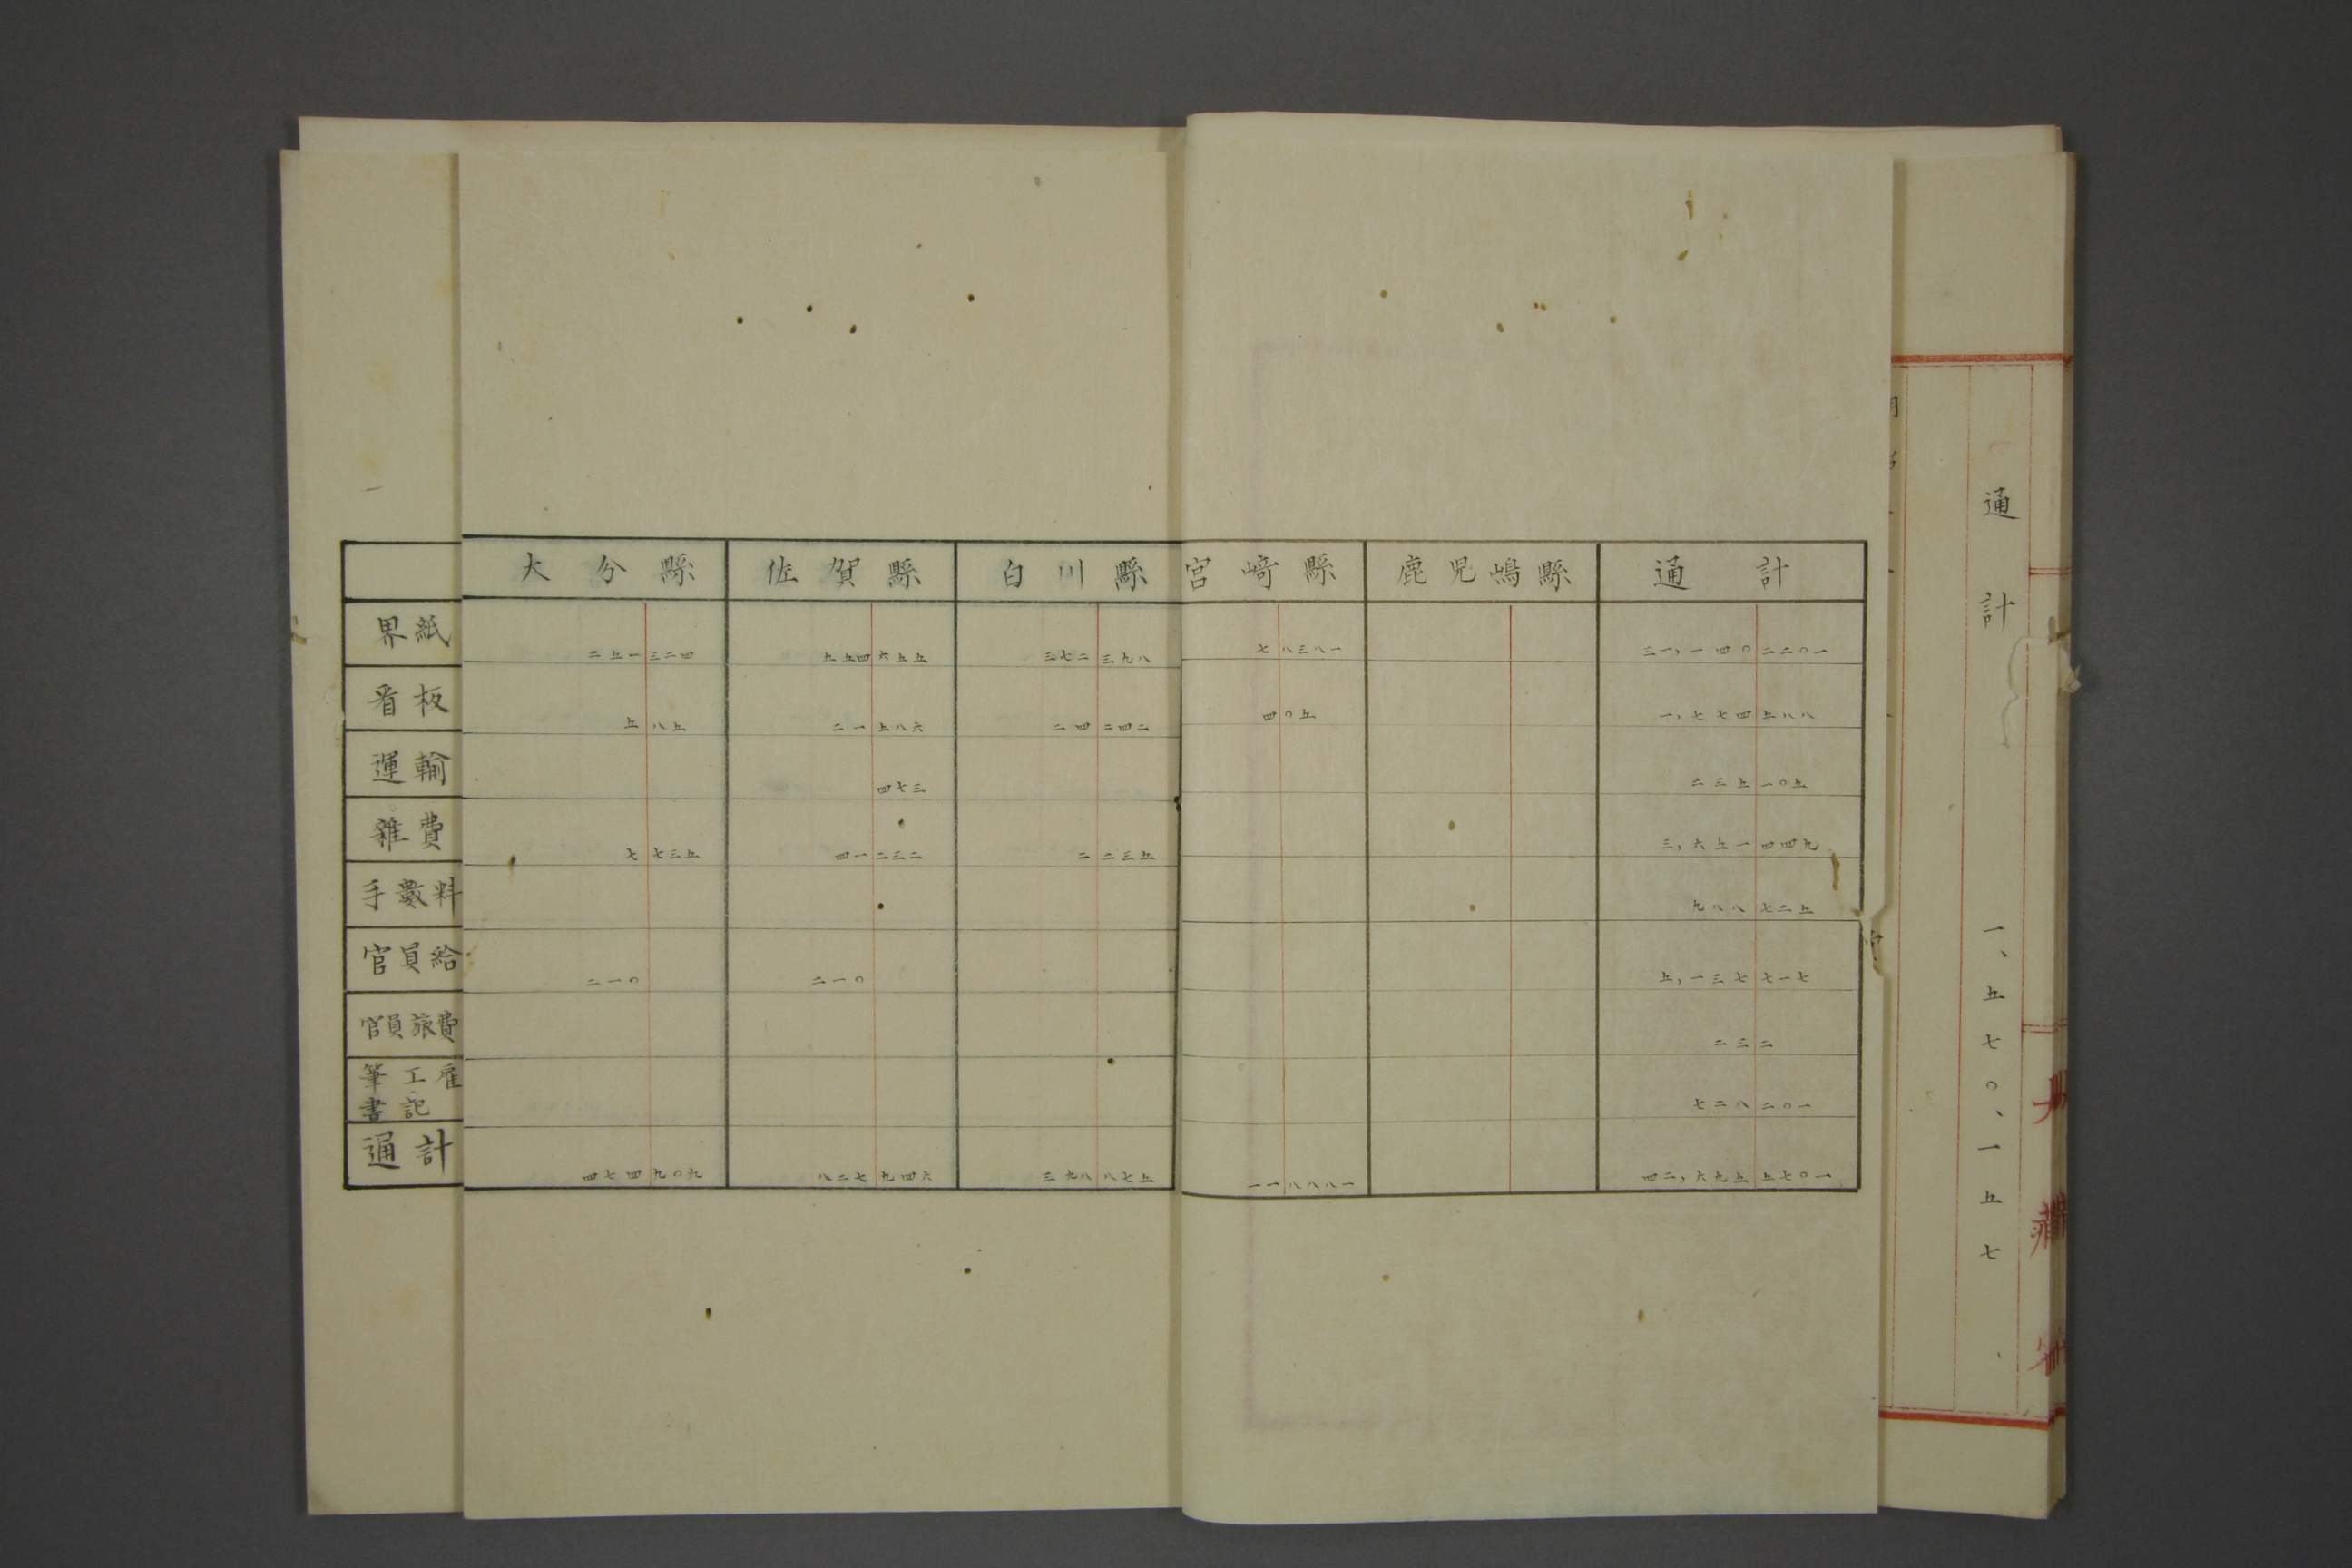 大分縣 佐賀縣 白川縣 宮﨑縣 鹿児嶋縣 通計
界紙 二五一三二四 五五四六五五 三七二三九八 七八三八一 三一,一四〇二二〇一
看板 五八五 二一五八六 二四二四二 四〇五 一,七七四五八八
運輸 四七三 二三五一〇五
雑費 七七三五 四一二三二 二二三五 三,六五一四四九
手數料 九八八七二五
官員給 二一〇 二一〇 五,一三七七一七
官員旅費 二三二
筆工雇
書記 七二八二〇一
通計 四七四九〇九 八二七九四六 三九八八七五 一一八八八一 四二,六九五五七〇一
通計 一、五七〇、一五七